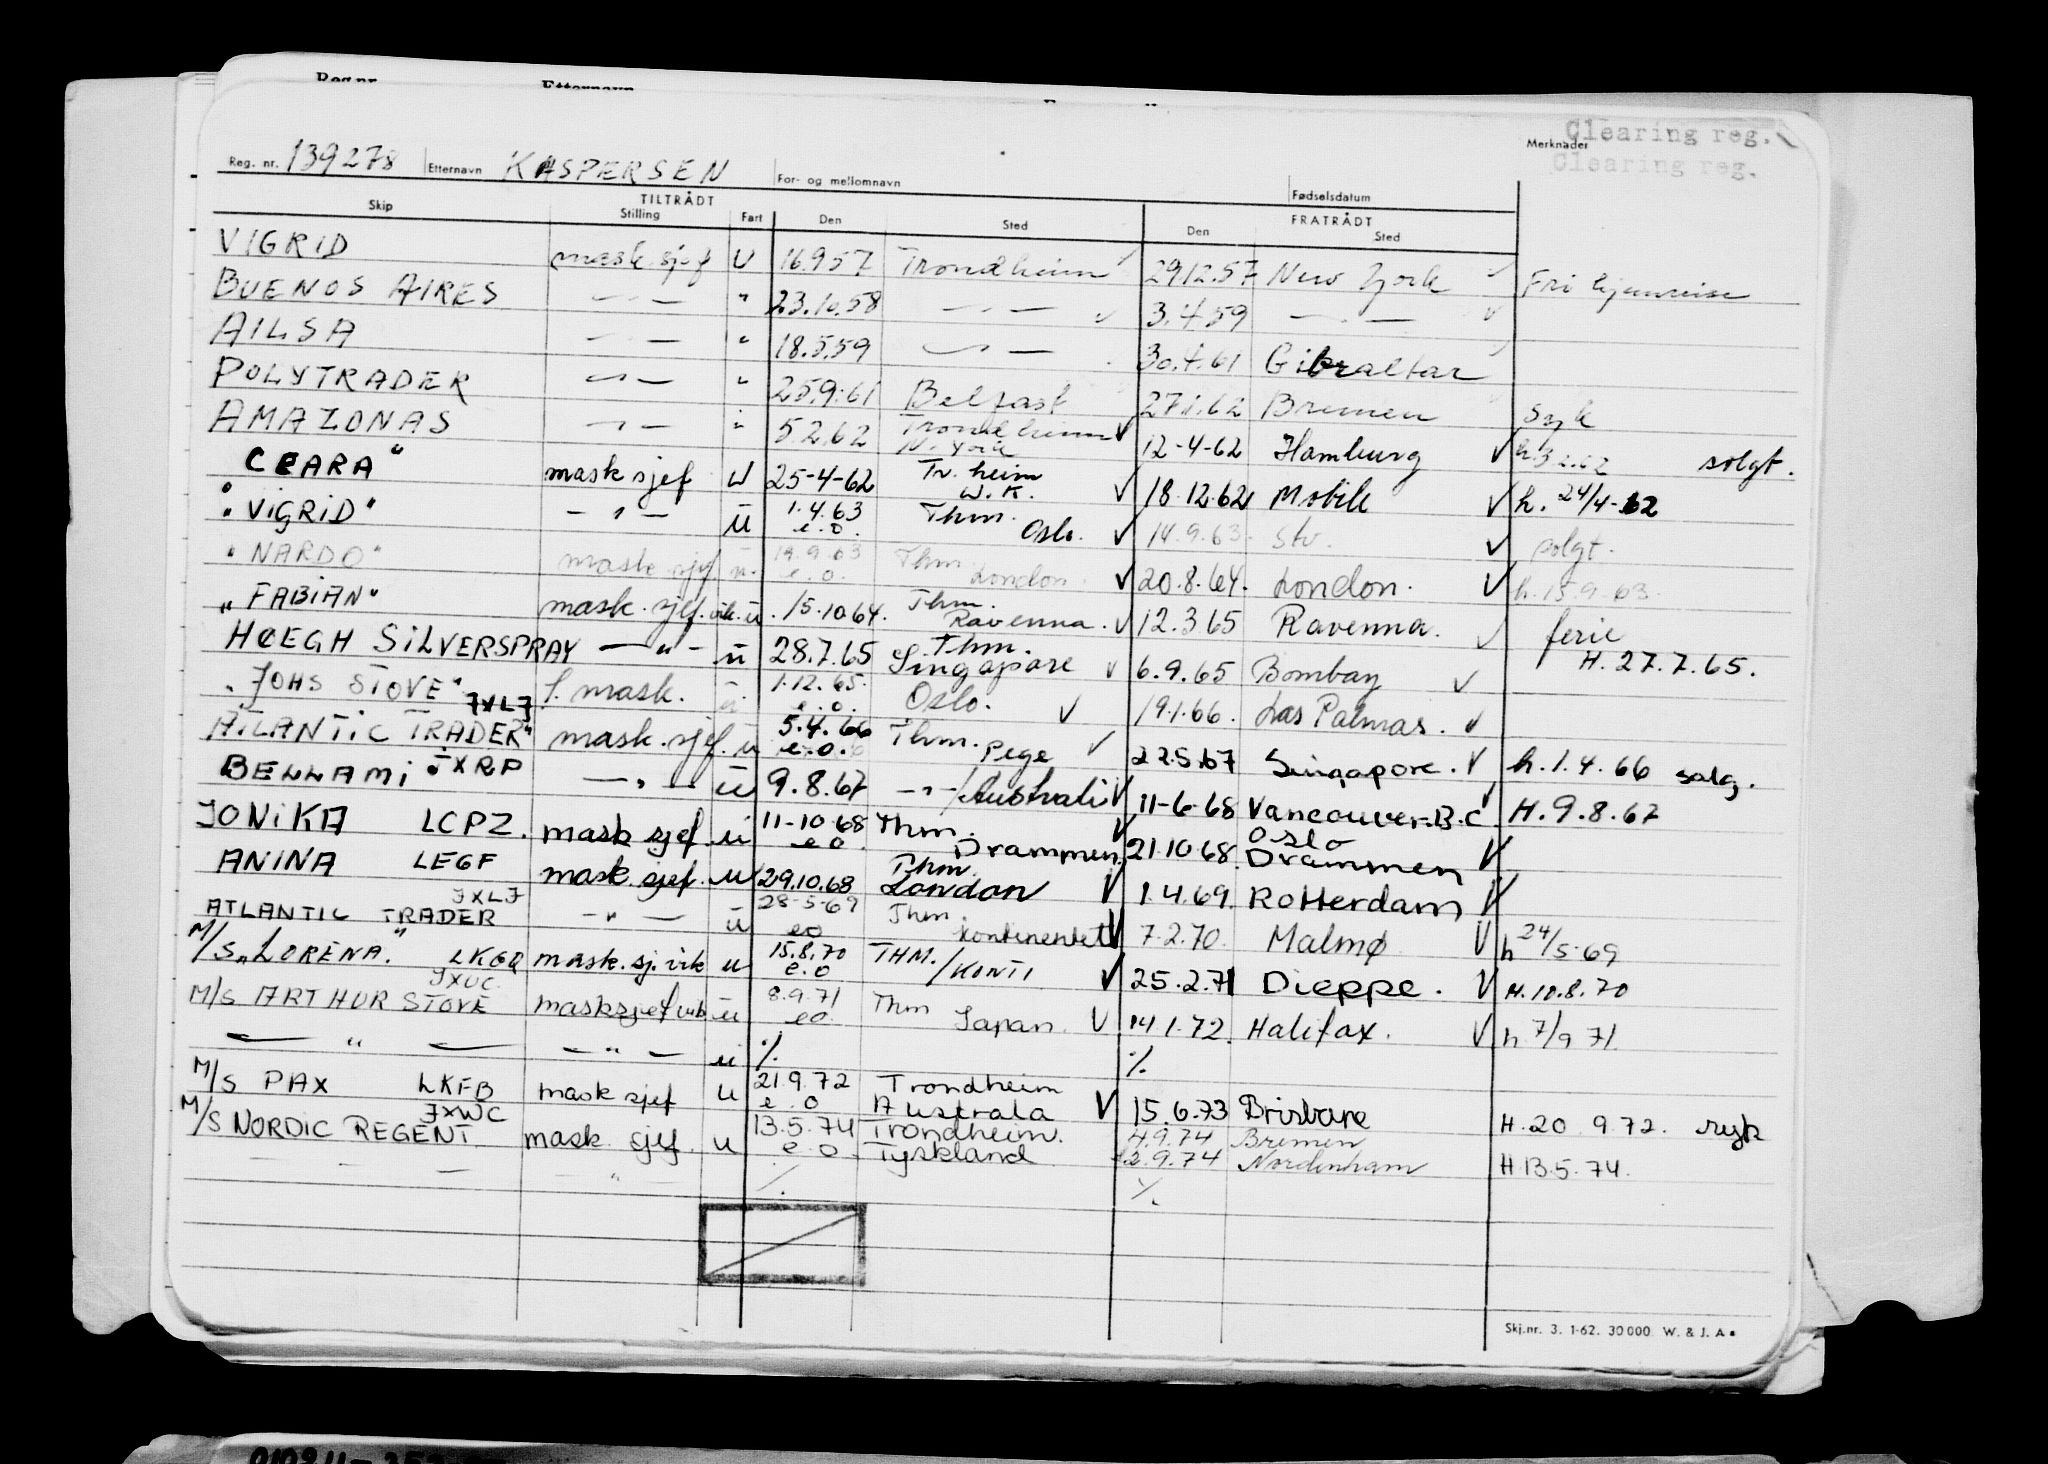 Reg.nr. Etternavn
Clearing reg.
Reg. nr. 139278 Etternavn KASPERSEN For- og mellomnavn Fødselsdatum Merknader Clearing reg.
TILTRÅDT FRATRÅDT
Skip Stilling Fart Den Sted Den Sted
VIGRID mask. sjef U 16.9.57 Trondheim ✓ 29.12.57 New York ✓ Fri hjemreise
BUENOS AIRES —„— " 23.10.58 —„— ✓ 3.4.59 —„— ✓
AILSA —„— " 18.5.59 —„— 30.4.61 Gibraltar ✓
POLYTRADER —„— " 25.9.61 Belfast 27.1.62 Bremen syk
AMAZONAS —„— " 5.2.62 Trondheim N. York ✓ 12-4-62 Hamburg ✓ h. 3.2.62 solgt.
CEARA" mask sjef U 25-4-62 Tr. heim W.K. ✓ 18.12.62 Mobile ✓ h. 24/4-62
"VIGRID" —„— u 1.4.63 e.o. Thm. Oslo. ✓ 14.9.63. Stv. ✓ solgt.
"NARDO" mask sjef u. 19.9.63 e.o. Thm. London. ✓ 20.8.64. London. ✓ h. 15.9.63.
"FABIAN" mask. sjef. vik. u. 15.10.64. Thm. Ravenna. ✓ 12.3.65 Ravenna. ✓ ferie
HØEGH SILVERSPRAY —„— u 28.7.65 Thm. Singapore ✓ 6.9.65 Bombay ✓ H. 27.7.65.
"JOHS STOVE" 1. mask. u. 1.12.65. e.o. Oslo. ✓ 19.1.66. Las Palmas. ✓
ATLANTIC TRADER" JXLJ mask. sjef. u 5.4.66 e.o. Thm. pege ✓ 22.5.67 Singapore. ✓ h. 1.4.66 salg.
BELLAMI JXRP —„— u 9.8.67 —„—/Australi ✓ 11-6-68 Vancouver.B.C ✓ H. 9.8.67
JONIKA LCPZ. mask sjef u 11-10-68 e o Thm. Drammen. ✓ 21.10.68. Oslo Drammen ✓
ANINA LEGF mask sjef. u 29.10.68 Thm. London ✓ 1.4.69. Rotterdam ✓
ATLANTIC TRADER JXLJ —„— u 28-5-69 eo Thm. kontinentet ✓ 7.2.70. Malmø ✓ h 24/5-69
M/S „LORENA." LKGQ mask. sj. vik u 15.8.70 e.o THM./KONTI ✓ 25.2.71 Dieppe. ✓ H. 10.8.70
M/S ARTHUR STOVE JXUC. masksjef vik u 8.9.71 eo. Thm Japan. ✓ 14.1.72. Halifax. ✓ h 7/9 71.
—„— —„— u ./. ./.
M/S PAX LKFB mask sjef u 21.9.72 e.o Trondheim Australa ✓ 15.6.73 Brisbane H. 20.9.72. syk
M/S NORDIC REGENT JXWC mask. sjef. u 13.5.74 e.o. Trondheim. Tyskland 4.9.74 Bremen
2.9.74 Nordenham H. 13.5.74.
— — — " — ./. ./.
Skj.nr. 3. 1-62. 30 000. W. & J. A.